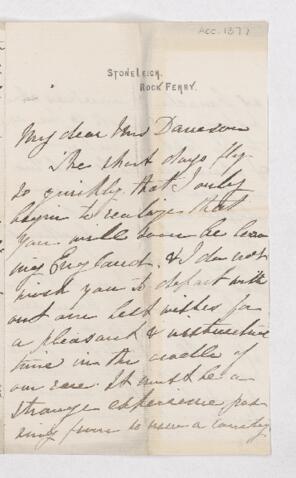 ACC. 1377
STONELEIGH,
ROCK FERRY.
My dear Mrs Davidson
The short days fly
so quickly that I only
begin to realize that
you will soon be leav
ing England. & I do not
wish you to depart with
out our best wishes for
a pleasant & instructive
time in the cradle of
our race. It must be a
strange experience pas
sing from so new a country